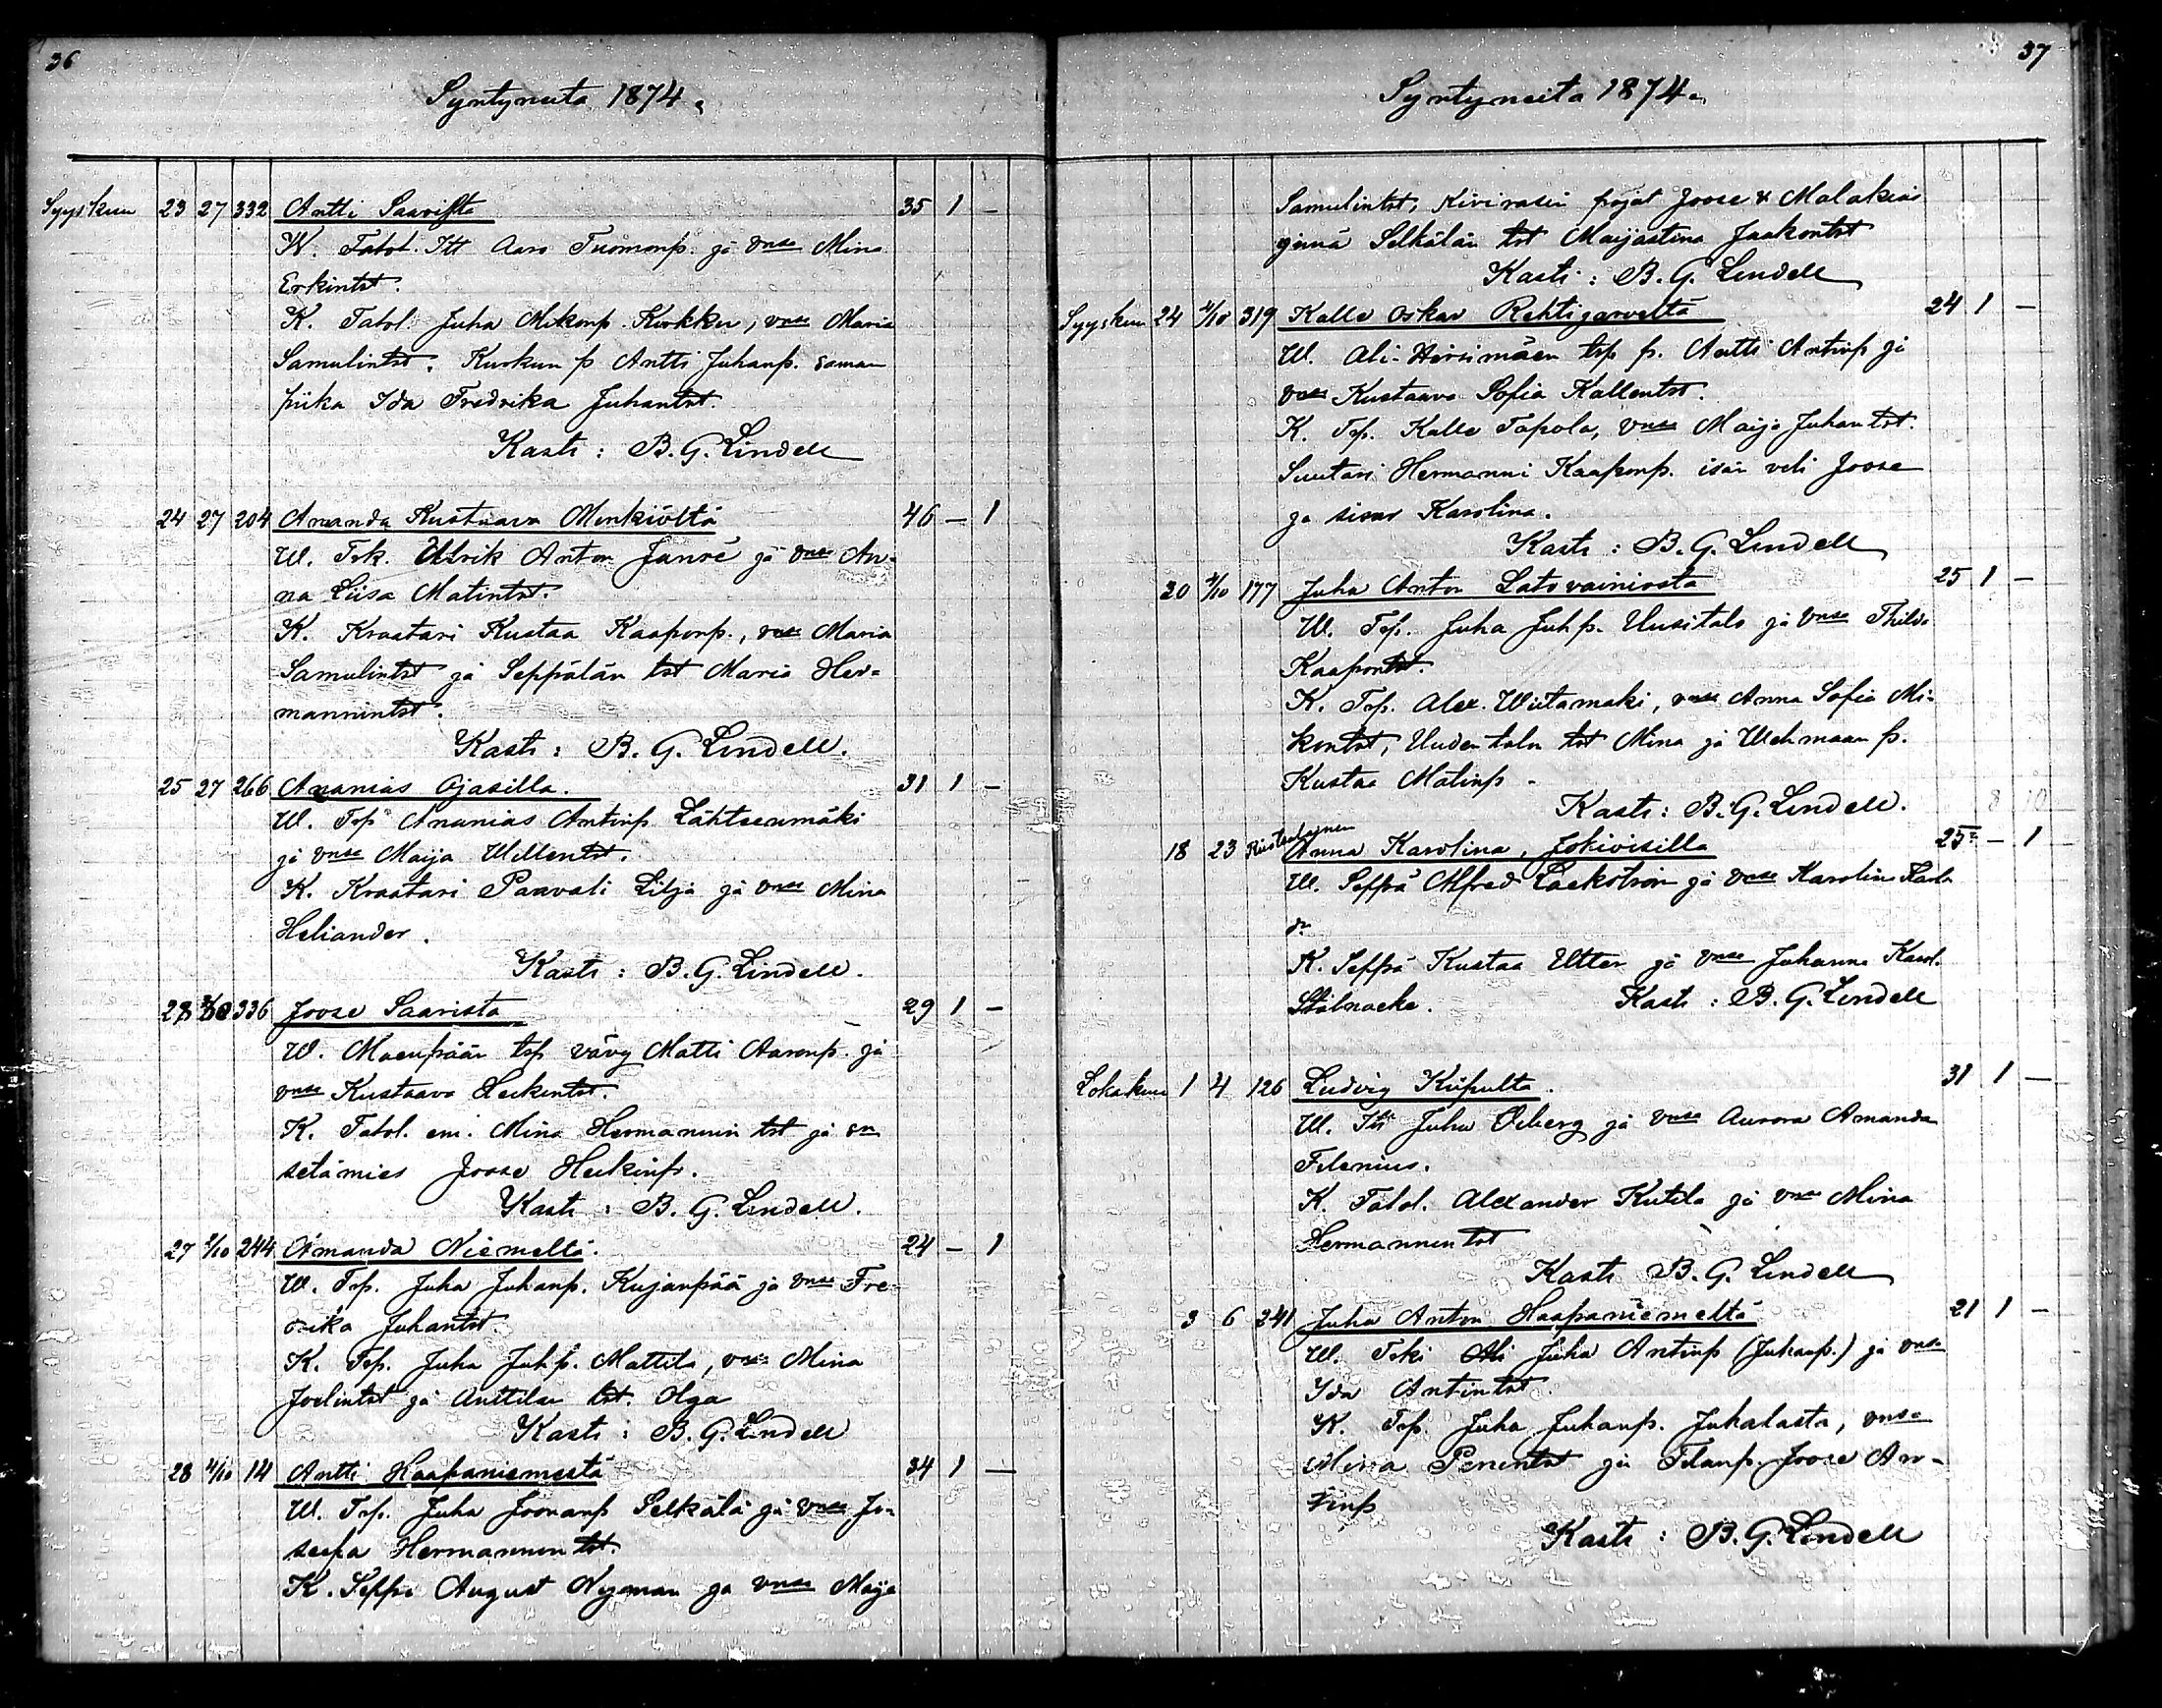 36
Syntyneita 1874.
Syyskuu 23 27 332 Antti Saarista 35 1 –
W. Tatol. Itt Aaro Tuomonp. ja vmsa Mina
Erkintst.
K. Tatol. Juha Mikonp. Kuokku, vmsa Maria
Samulintst. Kuokun p Antti Juhanp. saman
piika Ida Fredrika Juhantst.
Kasti: B. G. Lindell
24 27 204 Amanda Kustaava Minkiöltä 46 – 1
W. Tsk. Ulrik Anton Janve ja vmsa An-
na Liisa Matintst.
K. Kraatari Kustaa Kaaponp., vmsa Maria
Samulintst ja Seppälän tst Maria Her-
mannintst.
Kasti: B. G. Lindell.
25 27 266 Ananias Ojasilla. 31 1 –
W. Tsp Ananias Antinp Lähteenmäki
ja vmsa Maija Willentst.
K. Kraatari Paavali Lilja ja vmsa Mina
Heliander.
Kasti: B. G. Lindell.
28 336 Joose Saarista 29 1 –
W. Maenpään tsp vävy Matti Aaronp. ja
vmsa Kustaava Heikintst.
K. Tatol. em. Mina Hermannin tst ja sn
setämies Joose Heikinp.
Kasti: B. G. Lindell.
27 2/10 244 Amanda Niemeltä. 24 – 1
W. Tsp. Juha Juhanp. Kujanpää ja vmsa Fre-
drika Juhantst.
K. Tsp. Juha Juhp. Mattila, vmsa Mina
Joelintst ja Anttilan tst. Olga
Kasti: B. G. Lindell
28 4/10 14 Antti Haapaniemestä 34 1 –
W. Tsp. Juha Joonanp Selkälä ja vmsa Jo-
seefa Hermannin tst.
K. Seppä August Nyman ja vmsa Maija
37
Syntyneita 1874.
Samulintst, Kivirasin pojat Joose & Malakias
ynnä Selkälän tst Maijastina Jaakontst
Kasti: B. G. Lindell
Syyskuu 24 4/10 319 Kalle Oskar Rehtijarveltä 24 1 –
W. Ali-Hirsimäen tsp p. Antti Antinp ja
vmsa Kustaava Sofia Kallentst.
K. Tsp. Kalle Tapola, vmsa Maija Juhantst.
Suutari Hermanni Kaaponp. isän veli Joose
ja sisar Karolina.
Kasti: B. G. Lindell
30 4/10 177 Juha Anton Latovainiosta 25 1 –
W. Tsp. Juha Juhp. Uusitalo ja vmsa Thilda
Kaapontst.
K. Tsp. Alex. Wiitamaki, vmsa Anna Sofia Mi-
kontst, Uuden talon tst Mina ja Wehmaan p.
Kustaa Matinp –
Kasti: B. G. Lindell. 8 10
18 23 Anna Karolina, Jokivisilla 25 – 1
W. Seppä Alfred Laekström ja vmsa Karolina Karls
dr
K. Seppä Kustaa Utter ja vmsa Johanna Karol.
Stålnacke. Kasti: B. G. Lindell
Lokakuu 1 4 126 Ludvig Kiipulta. 31 1 –
W. Itt Juha Öiberg ja vmsa Aurora Amanda
Filenius.
K. Tatol. Alexander Kutila ja vmsa Mina
Hermannin tst
Kasti B. G. Lindell
3 6 241 Juha Anton Haapaniemeltä 21 1 –
W. Tski Ali Juha Antinp (Juhanp.) ja vmsa
Ida Antintst.
K. Tsp. Juha Juhanp. Juhalasta, vmsa
Miina Penintst ja Tilanp. Joose An-
tinp
Kasti: B. G. Lindell